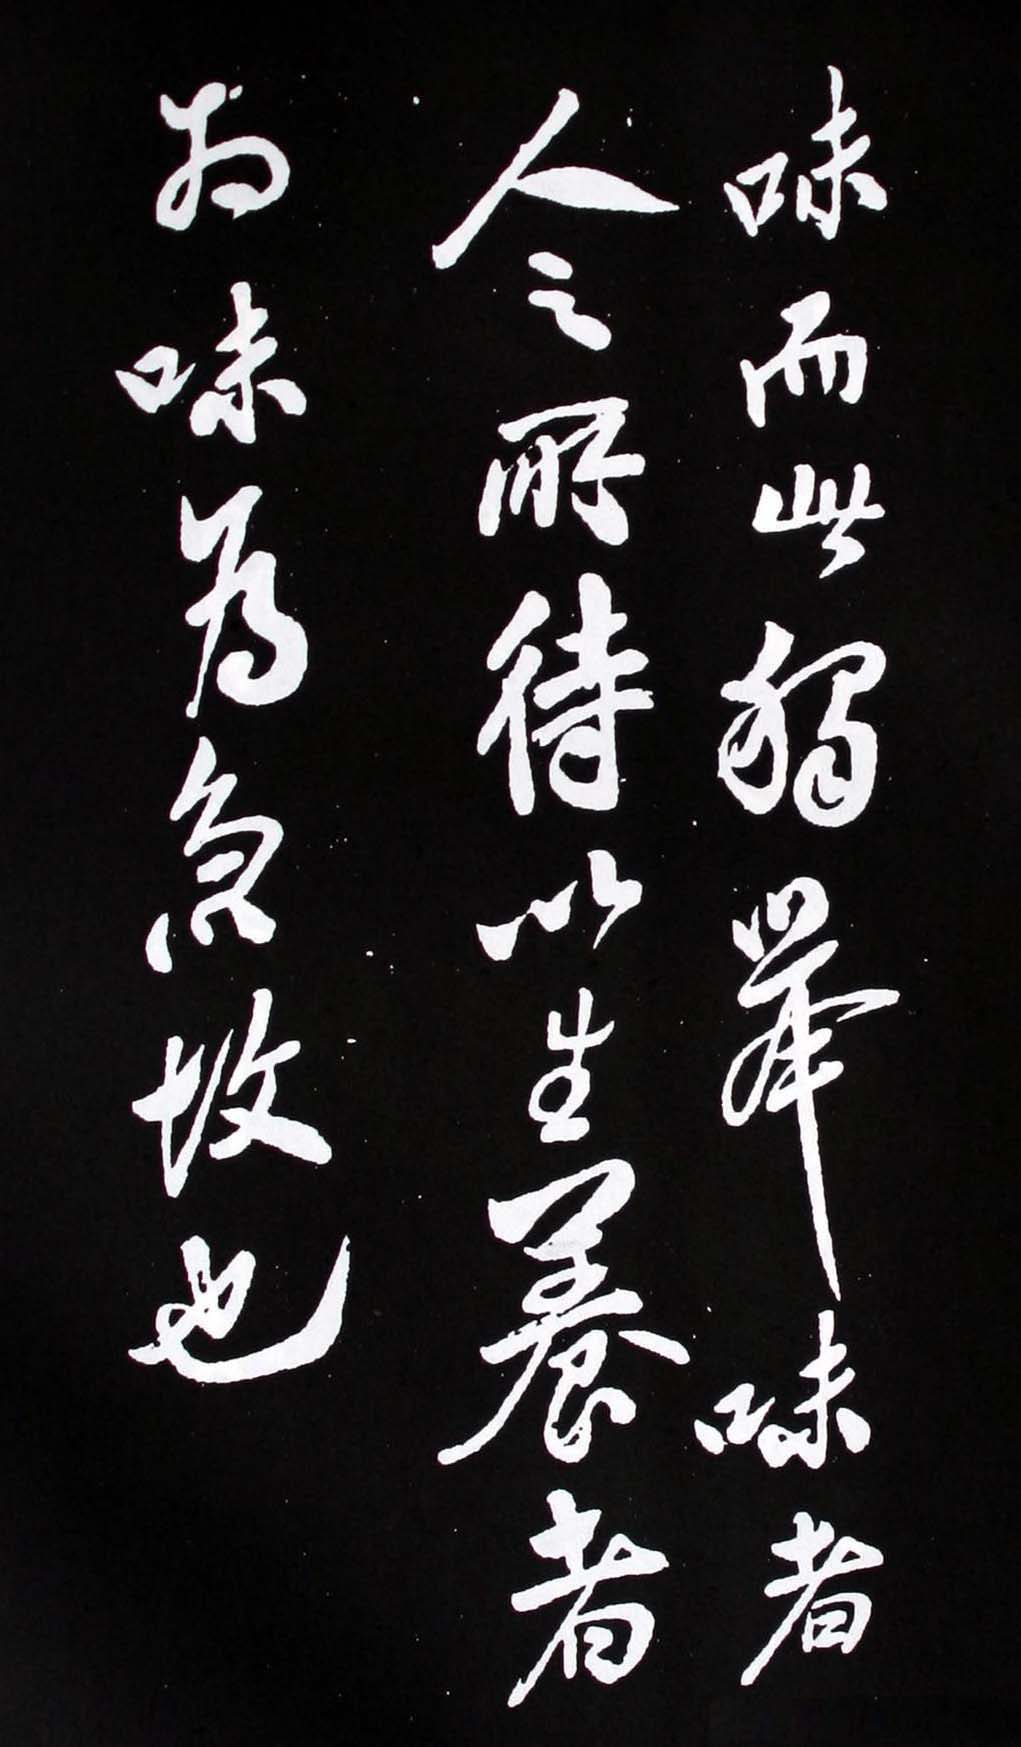 味而此獨舉味者
人之所待以生養者
味為急故也